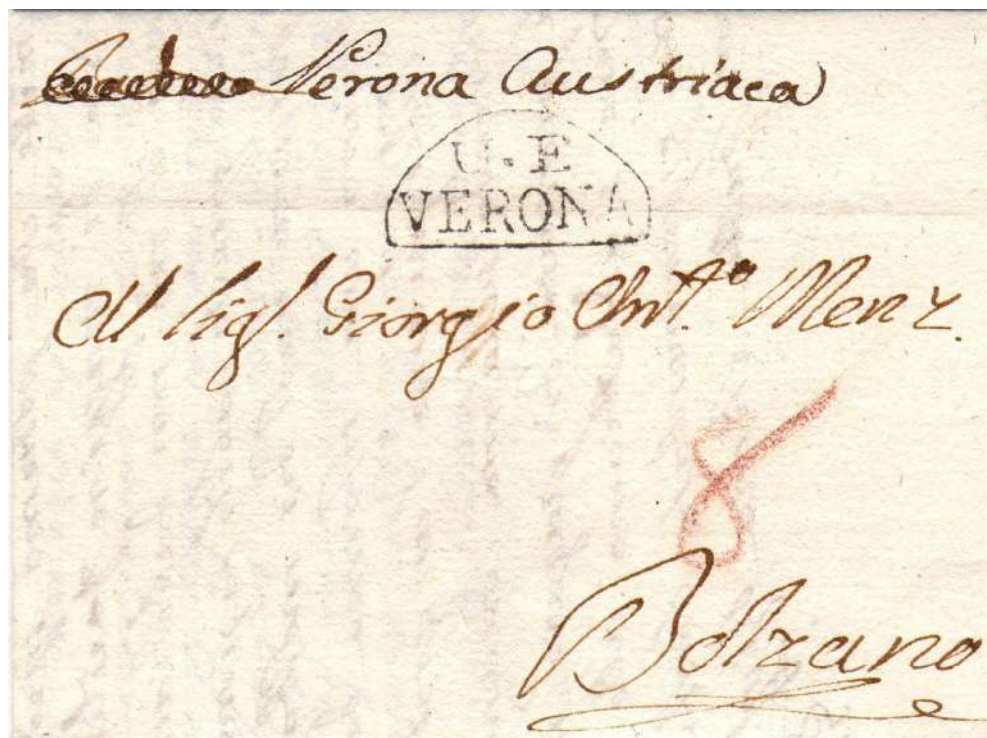 Verona Austriaca
U. E
VERONA
Al Sig.r Giorgio Ant.o Menz.
8
Bolzano